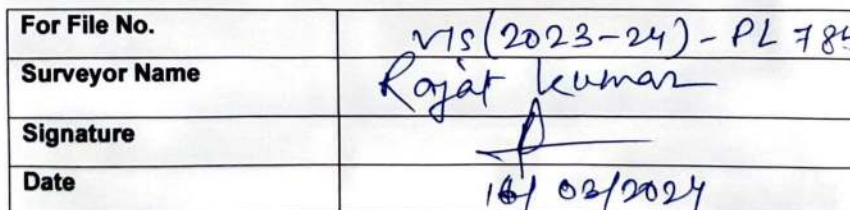 For File No. VIS(2023-24)-PL 784
Surveyor Name Rajat Kumar
Signature
Date 16/03/2024